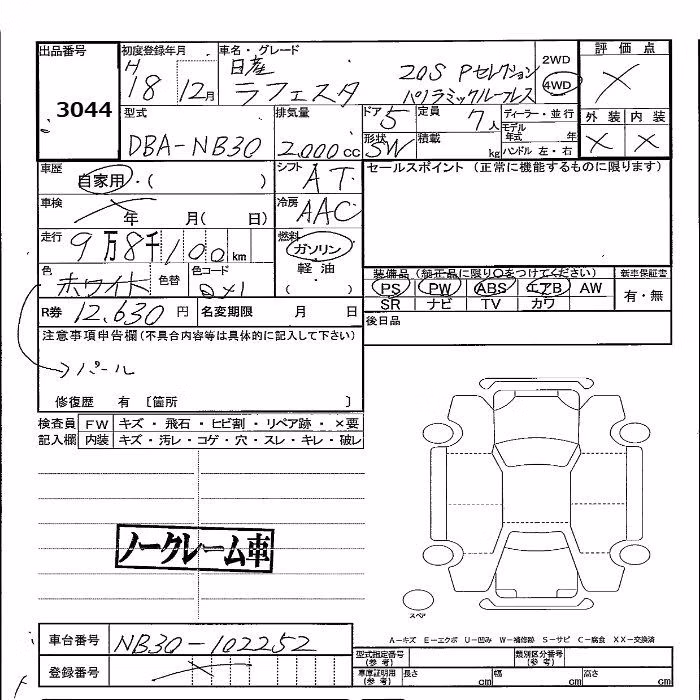 出品番号 初度登録年月 車名・グレード 評価点
3044 H 18 12月 日産 ラフェスタ 20S Pセレクション 2WD
パノラミックルーフレス 4WD
型式 排気量 ドア 5 定員 7人 ディーラー・並行 外装 内装
DBA-NB30 2,000cc 形状 SW 積載 kg モデル年式 年
ハンドル 左・右
車歴 自家用・( ) シフト AT セールスポイント (正常に機能するものに限ります)
車検 年 月( 日) 冷房 AAC
走行 9万8千100km 燃料 ガソリン
軽油
( )
色 ホワイト 色替 色コード QX1 装備品 (純正品に限り○をつけてください) 新車保証書
PS PW ABS エアB AW 有・無
SR ナビ TV カワ
R券 12,630円 名変期限 月 日 後日品
注意事項申告欄 (不具合内容等は具体的に記入して下さい)
→パール
修復歴 有 〔箇所 〕
検査員記入欄 FW キズ・飛石・ヒビ割・リペア跡・×要
内装 キズ・汚レ・コゲ・穴・スレ・キレ・破レ
ノークレーム車
スペア
A-キズ E-エクボ U-凹み W-補修跡 S-サビ C-腐食 XX-交換済
車台番号 NB30-102252
登録番号
型式指定番号(参考) 類別区分番号(参考)
車庫証明用(参考) 長さ cm 幅 cm 高さ cm